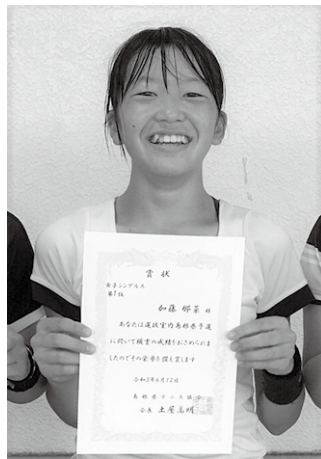 賞状
女子シングルス
第1位
加藤 那菜 殿
あなたは選抜室内島根県予選
に於いて頭書の成績をおさめられま
したのでその栄誉を讃え賞します
令和3年9月12日
島根県テニス協会
会長 土屋